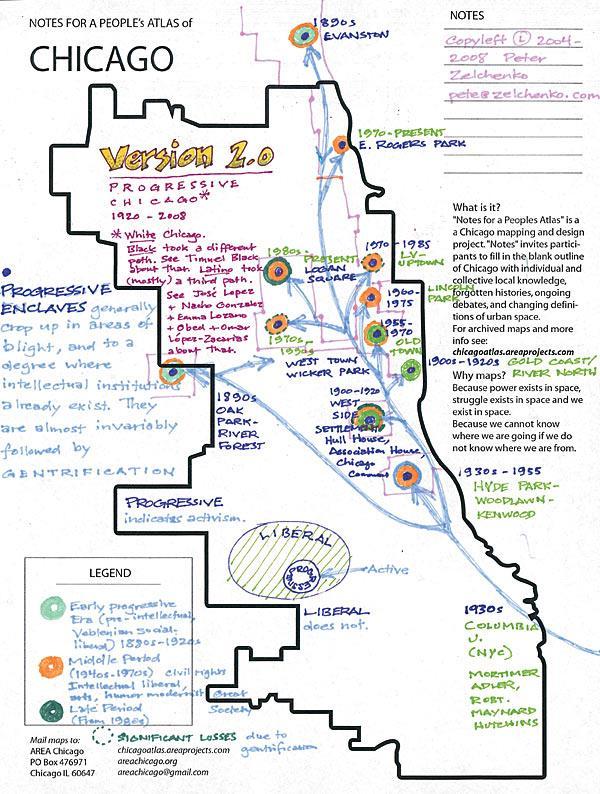 NOTES FOR A PEOPLE'S ATLAS of
CHICAGO
NOTES
Copyleft Ⓛ 2004-
2008 Peter
Zelchenko
pete@zelchenko.com
1890s
EVANSTON
1970-PRESENT
E. ROGERS PARK
Version 2.0
PROGRESSIVE
CHICAGO*
1920-2008
* White Chicago.
Black took a different
path. See Timuel Black
about that. Latino took
(mostly) a third path.
See José Lopez
+ Nacho Gonzalez
+ Emma Lozano
+ Obed + Omar
Lopez-Zacarias
about that.
1980s-PRESENT
LOGAN
SQUARE
1970-1985
LV-
UPTOWN
LINCOLN
PARK
1960-
1975
1955-
1970
OLD
TOWN
1900s-1920s GOLD COAST/
RIVER NORTH
1970s-
1990s
WEST TOWN
WICKER PARK
PROGRESSIVE
ENCLAVES generally
crop up in areas of
blight, and to a
degree where
intellectual institutions
already exist. They
are almost invariably
followed by
GENTRIFICATION
1890s
OAK
PARK-
RIVER
FOREST
1900-1920
WEST
SIDE
SETTLEMENT
Hull House,
Association House,
Chicago
Commons
1930s-1955
HYDE PARK-
WOODLAWN-
KENWOOD
What is it?
"Notes for a Peoples Atlas" is a
a Chicago mapping and design
project. "Notes" invites partici-
pants to fill in the blank outline
of Chicago with individual and
collective local knowledge,
forgotten histories, ongoing
debates, and changing defini-
tions of urban space.
For archived maps and more
info see:
chicagoatlas.areaprojects.com
Why maps?
Because power exists in space,
struggle exists in space and we
exist in space.
Because we cannot know
where we are going if we do
not know where we are from.
PROGRESSIVE
indicates activism.
LIBERAL
Active
LIBERAL
does not.
1930s
COLUMBIA
U.
(NYC)
MORTIMER
ADLER,
ROBT.
MAYNARD
HUTCHINS
LEGEND
Early progressive
Era (pre-intellectual,
Veblenian Social-
liberal) 1880s-1920s
Middle Period
(1940s-1970s) civil rights
Intellectual liberal,
arts, humor modernist Great
Society
Late Period
(From 1980s)
SIGNIFICANT LOSSES due to
gentrification
Mail maps to:
AREA Chicago
PO Box 476971
Chicago IL 60647
chicagoatlas.areaprojects.com
areachicago.org
areachicago@gmail.com